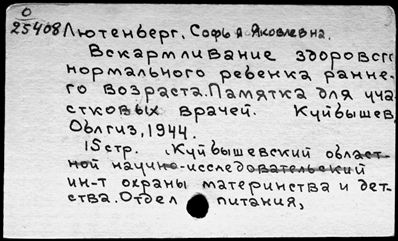 0
25408 Лютенберг, Софья Яковлевна.
Вскармливание здорового
нормального ребенка ранне-
го возраста. Памятка для уча-
стковых врачей. Куйбышев,
Облгиз, 1944.
15 стр. Куйбышевский област-
ной научно-исследовательский
ин-т охраны материнства и дет-
ства. Отдел питания,